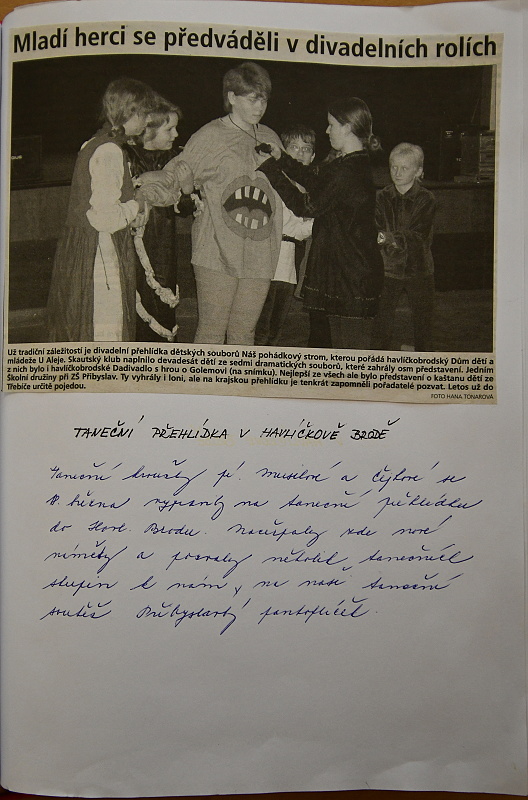 Mladí herci se předváděli v divadelních rolích
Už tradiční záležitostí je divadelní přehlídka dětských souborů Náš pohádkový strom, kterou pořádá havlíčkobrodský Dům dětí a
mládeže U Aleje. Skautský klub naplnilo devadesát dětí ze sedmi dramatických souborů, které zahrály osm představení. Jedním
z nich bylo i havlíčkobrodské Dadivadlo s hrou o Golemovi (na snímku). Nejlepší ze všech ale bylo představení o kaštanu dětí ze
Školní družiny při ZŠ Přibyslav. Ty vyhrály i loni, ale na krajskou přehlídku je tenkrát zapomněli pořadatelé pozvat. Letos už do
Třebíče určitě pojedou.
FOTO HANA TONAROVÁ
TANEČNÍ PŘEHLÍDKA V HAVLÍČKOVĚ BRODĚ
Taneční kroužky pí. Musilové a Čejkové se
března vypravily na taneční přehlídku
do Havl. Brodu. Načerpaly zde nové
náměty a pozvaly několik tanečních
skupin k nám, na naši taneční
soutěž Přibyslavský pantoflíček.